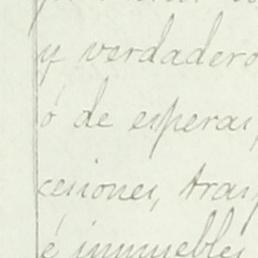 y verdadero
ó de esperas,
cesiones, tras
é inmuebles